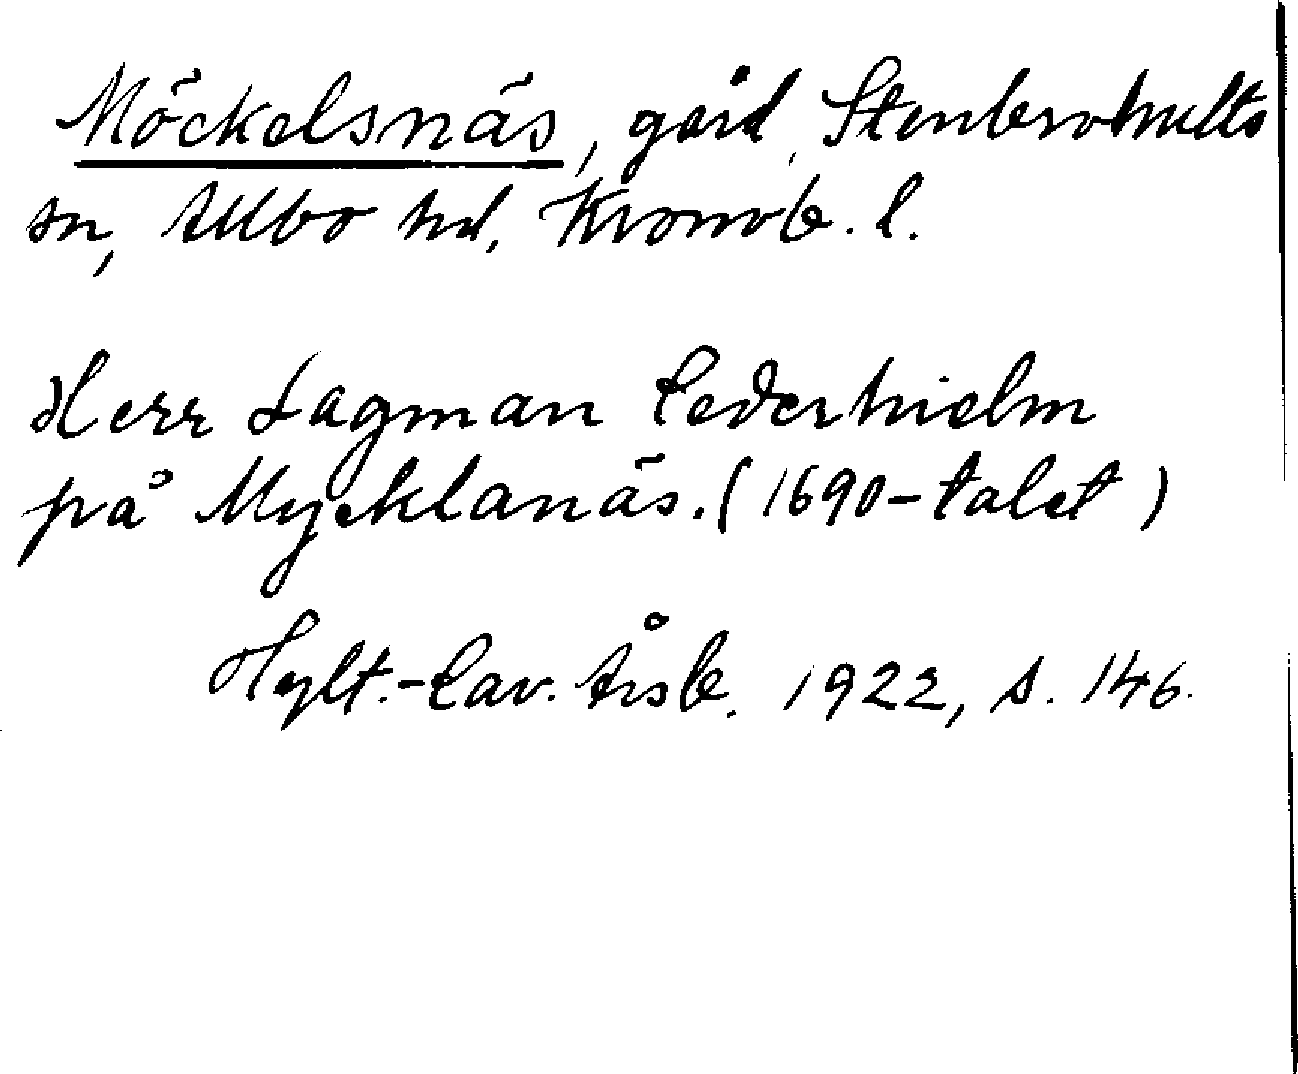 Möckelsnäs, gård, Stenbrohults
sn, Allbo hd, Kronob. l.
Herr Lagman Cederhielm
på Mycklanäs. (1690-talet)
Hylt.-Cav. Årsb. 1922, s. 146.